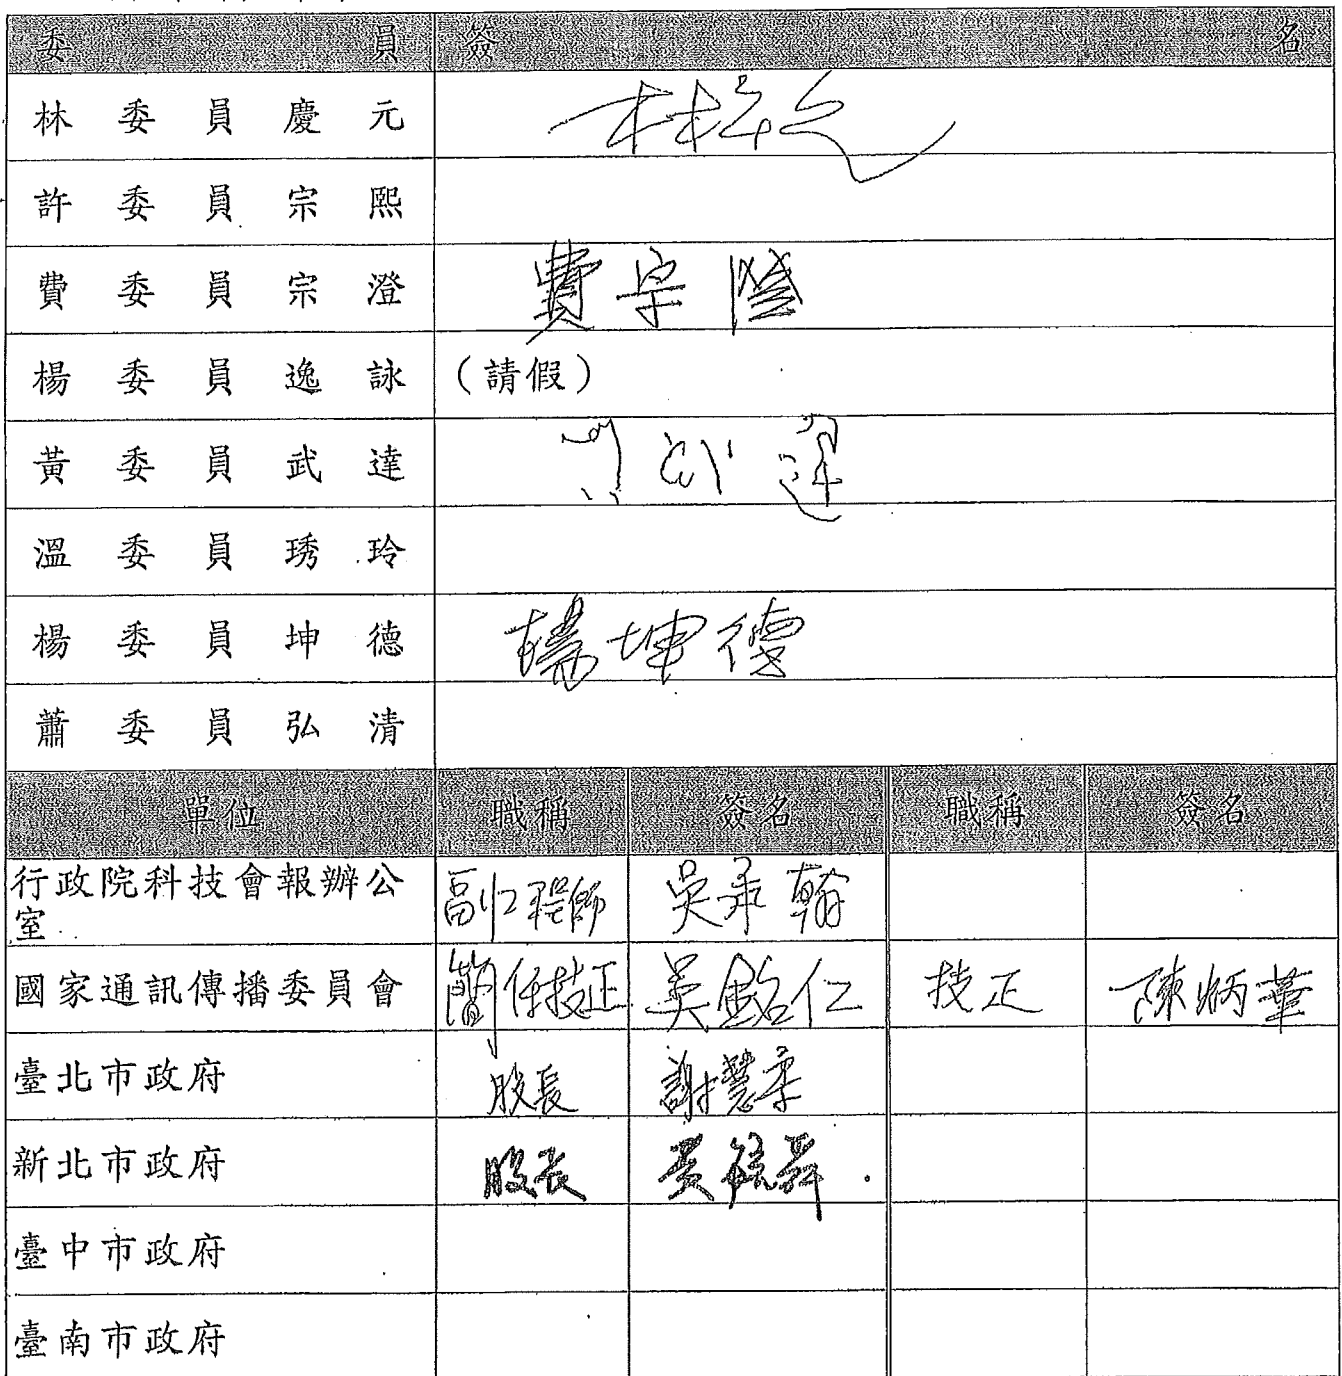 委員 簽名
林委員慶元 林慶元
許委員宗熙
費委員宗澄 費宗澄
楊委員逸詠 （請假）
黃委員武達 黃武達
溫委員琇玲
楊委員坤德 楊坤德
蕭委員弘清
單位 職稱 簽名 職稱 簽名
行政院科技會報辦公
室 副工程師 吳承翰
國家通訊傳播委員會 簡任技正 吳銘仁 技正 陳炳華
臺北市政府 股長 謝慧柔
新北市政府 股長
臺中市政府
臺南市政府